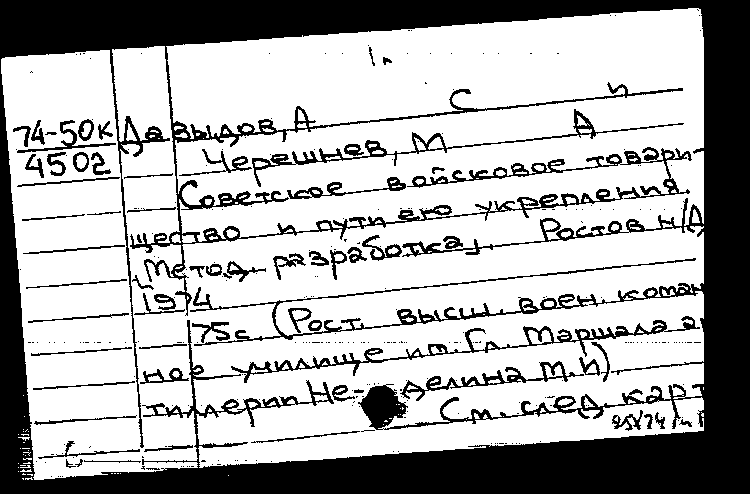 1.
С И
74-50к Давыдов, А
4502 Черешнев, М А
Советское войсковое товари-
щество и пути его укрепления.
[Метод. разработка]. Ростов н/Д
1974.
75с. (Рост. высш. воен. коман
ное училище им. Гл. Маршала ар
тиллерии Не-делина М.И).
См. след. карт